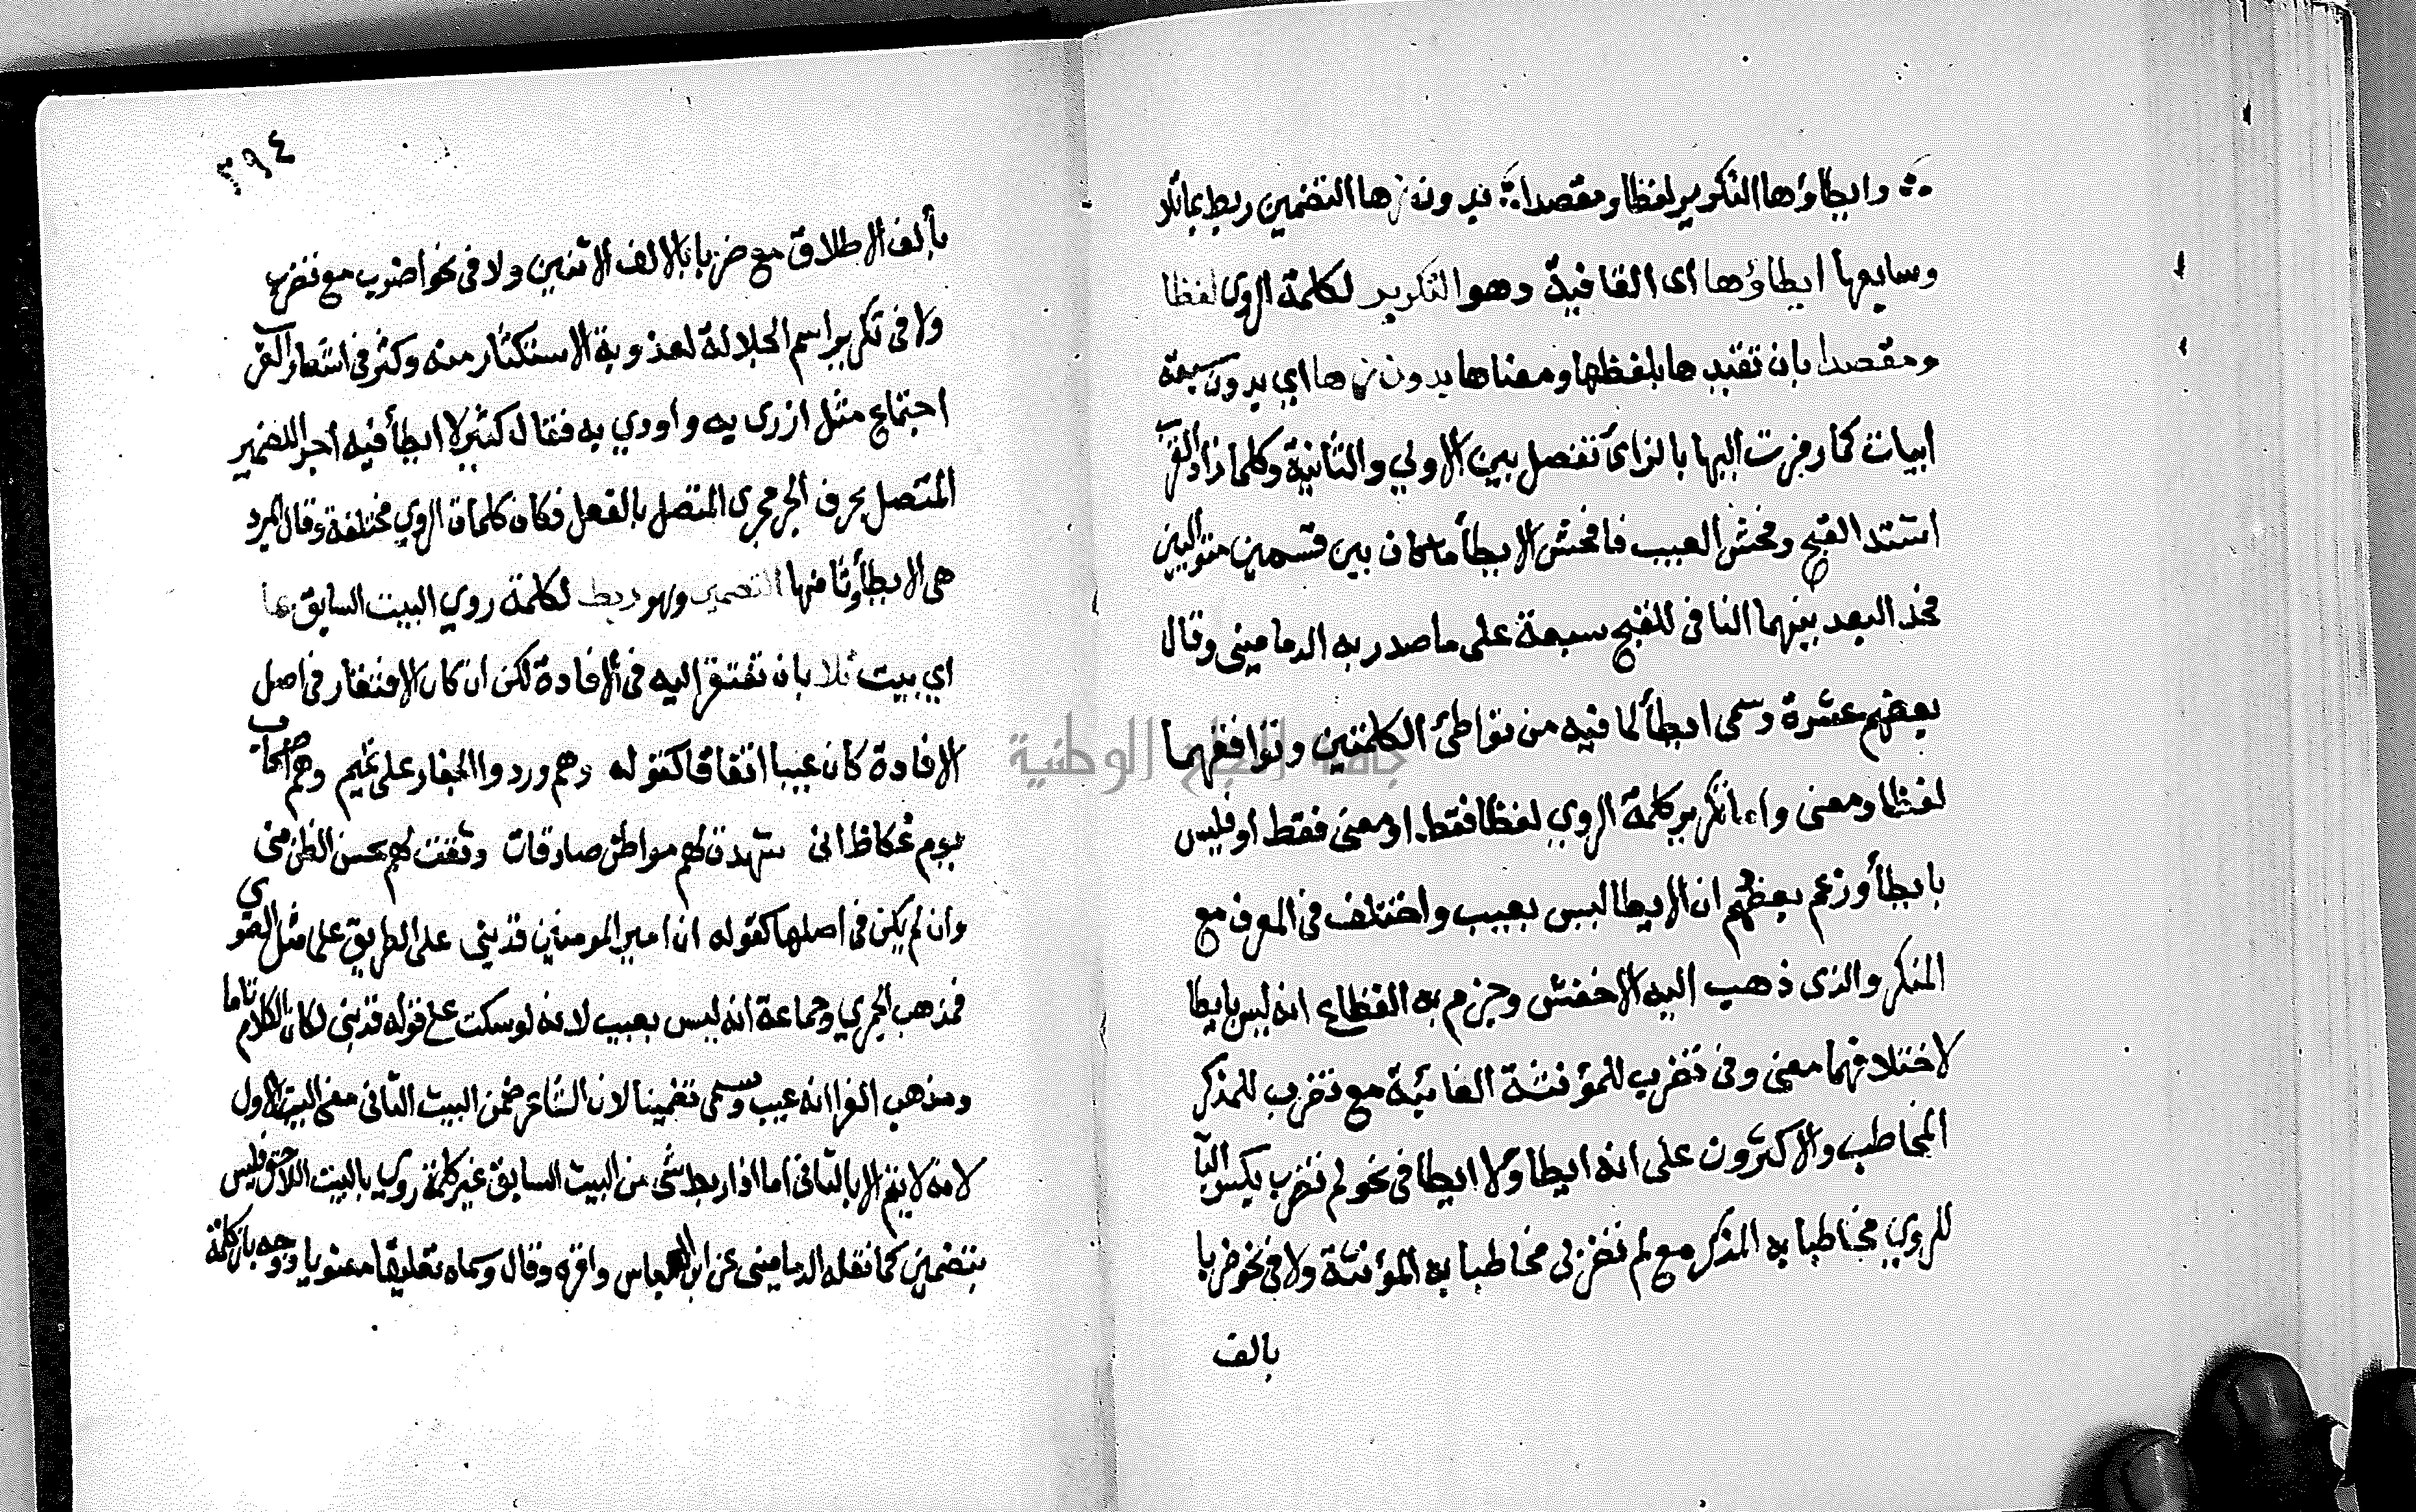 وايطاؤها التكرير لفظا ومقصدا بدون زها التضمين ربط بما تلا
وسابعها ايطاؤها اى القافية وهو التكرير لكلمة الروى لفظا
ومقصدا بان تقيد ها بلفظها ومعناها بدون زها اي بدون سبعة
ابيات كما رمزت اليها بالزاى تفصل بين الاولي والثانية وكلما زاد القرب
اشتد القبح وفحش العيب فافحش الايطأ ما كان بين قسمين متواليين
فحد البعد بينهما النافى للقبح سبعة على ما صدر به الدمامينى وقال
بعضهم عشرة وسمى ايطأ لما فيه من تواطئ الكلمتين وتوافقهما
لفظا ومعنى واما تكرير كلمة الروي لفظا فقط او معنى فقط او فليس
بايطأ وزعم بعضهم ان الايطا ليس بعيب واختلف فى المعرف مع
المنكر والذى ذهب اليه الاخفش وجزم به القطاع انه ليس بايطا
لاختلافهما معنى وفى تضرب للمؤنثة الغائبة مع تضرب للمذكر
المخاطب والاكثرون على انه ايطا ولا ايطا فى نحو لم تضرب بكسر البآ
للروي مخاطبا به المذكر مع لم تضربى مخاطبا به المؤنثة ولا فى نحو ضربا
بالف
جامعة النجاح الوطنية
٣٩٤
بألف الاطلاق مع ضربا بالالف الاثنين ولا فى نحو اضرب مع تضرب
ولا فى تكرير اسم الجلالة لعذوبة الاستكثار منه وكثر فى اشعار العرب
اجتماع مثل ازرى به واودي به فقال كثير لا ايطأ فيه اجرا الضمير
المتصل بحرف الجر مجرى المتصل بالفعل فكان كلمات الروي مختلفة وقال المبرد
هى الايطأ وثامنها التضمين وهو ربط لكلمة روي البيت السابق بما
اي بيت تلا بان تفتقر اليه فى الافادة لكن ان كان الافتقار فى اصل
الافادة كان عيبا اتفاقا كقوله وهم وردوا الجفار على تميم وهم اصحاب
يوم عكاظ انى شهدت لهم مواطن صادقات وثقت لهم بحسن الظن منى
وان لم يكن فى اصلها كقوله ان امير المومنين قد بنى على الطريق علما مثل الصوي
فمذهب الجرمي وجماعة انه ليس بعيب لانه لو سكت على قوله قد بنى لكان الكلام تاما
ومذهب الفرا انه عيب وسمى تضمينا لان الشاعر ضمن البيت الثانى معنى البيت الاول
لانه لا يتم الا بالثانى اما اذا ربط شى من البيت السابق غير كلمة روي بالبيت اللاحق فليس
بتضمين كما نقله الدمامينى عن ابى العباس واقره وقال وسماه تعليقا معنويا ووجه بان كلمة